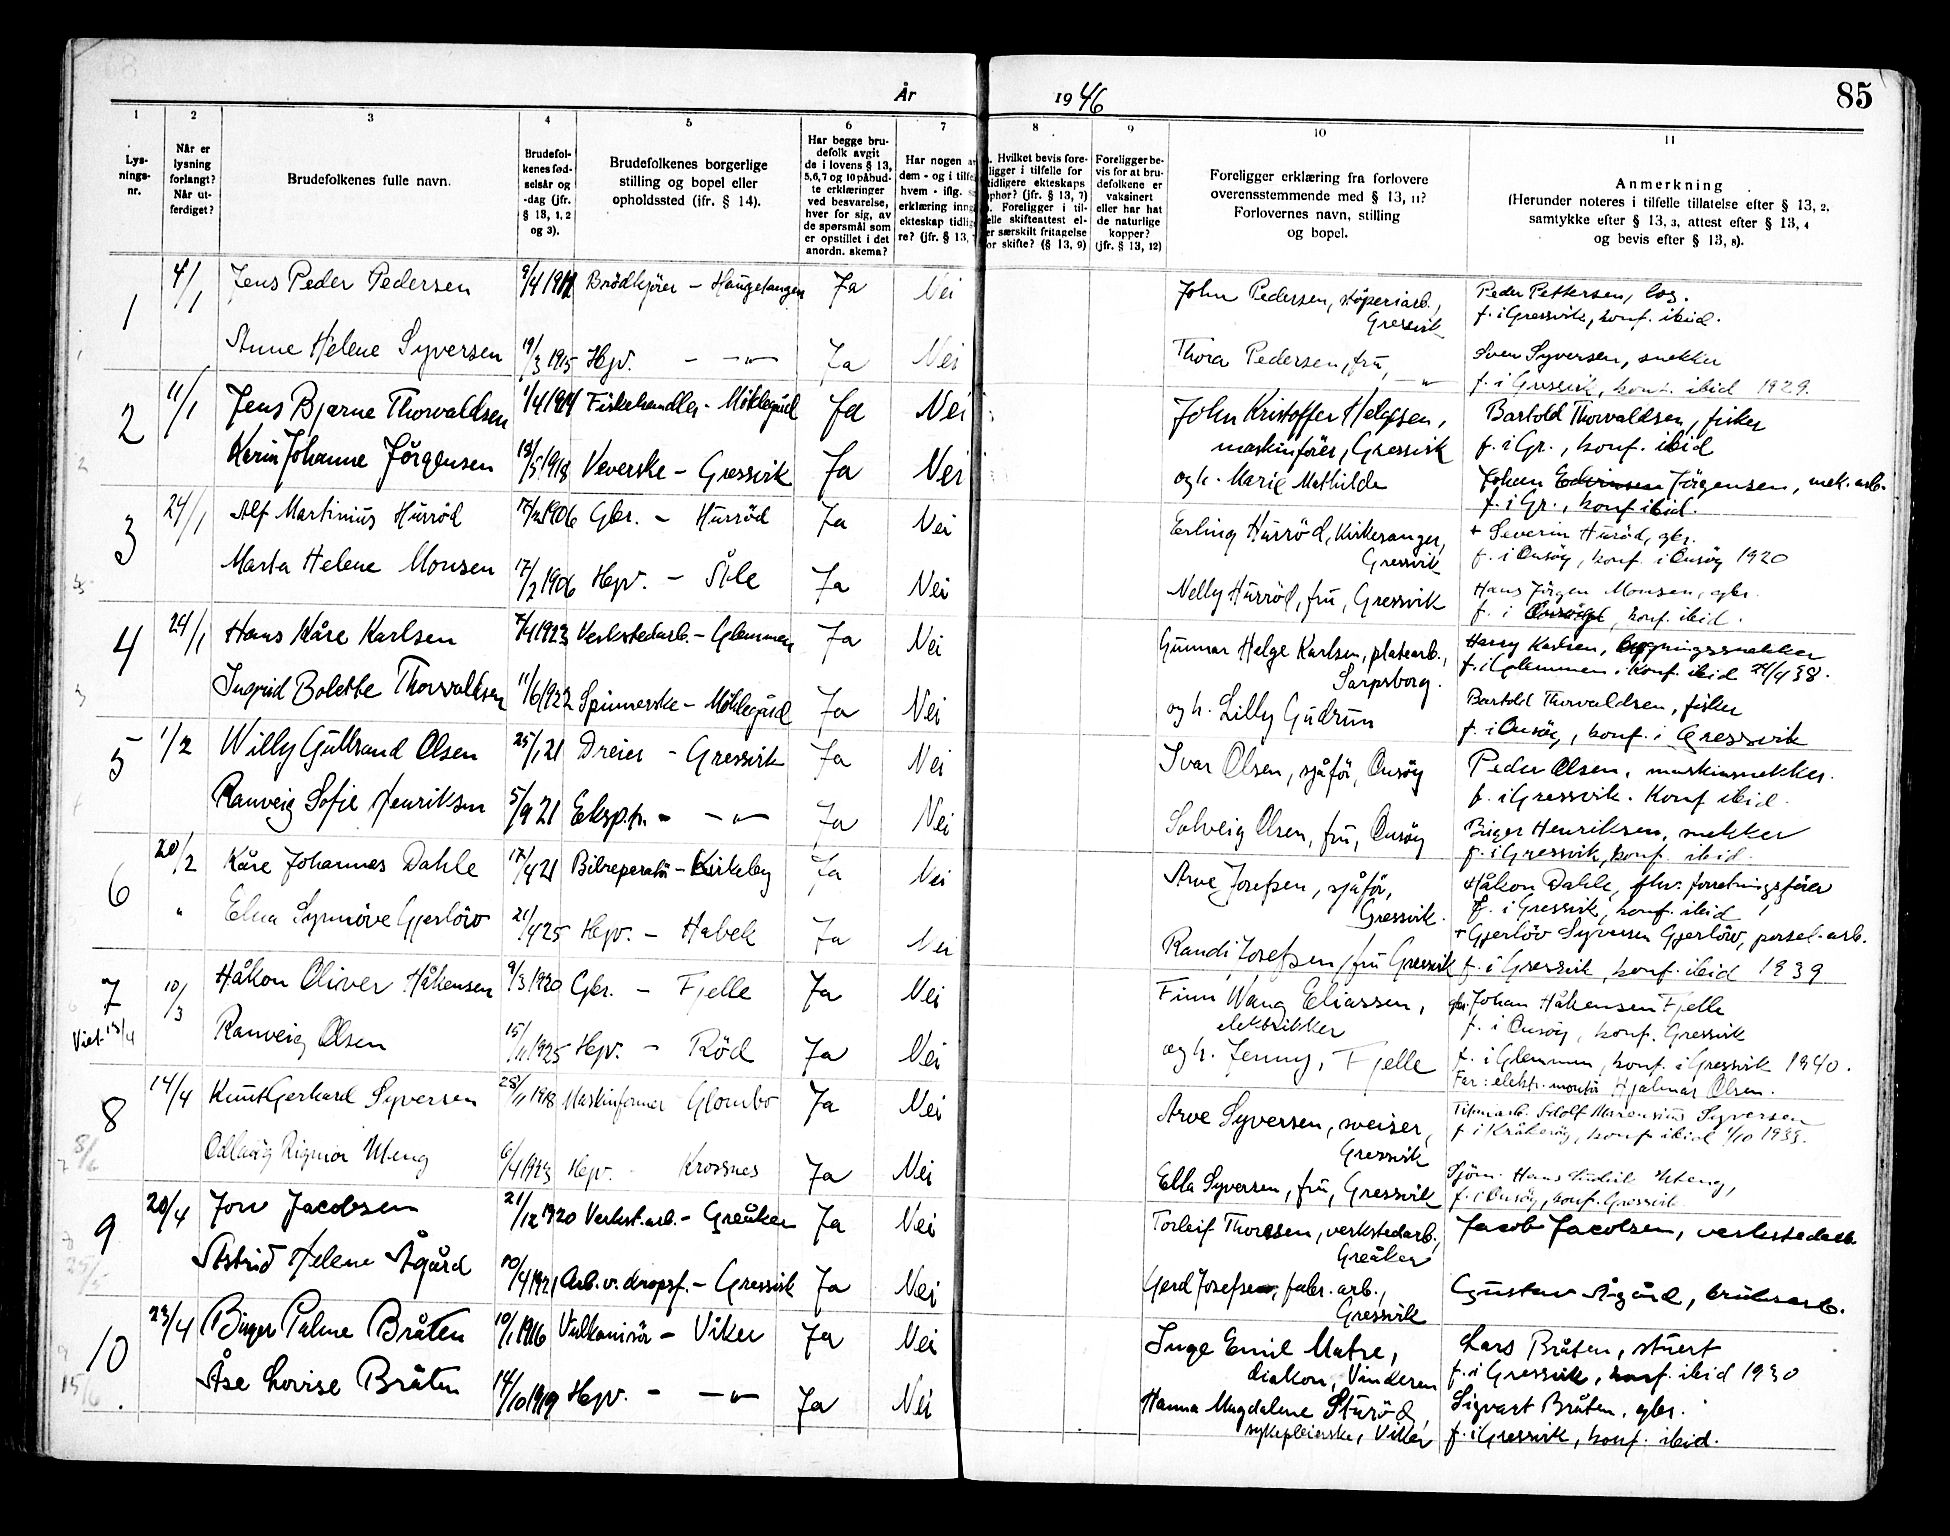 85
År 1946
1 2 3 4 5 6 7 8 9 10 11
Lys-
nings-
nr.
Når er
lysning
forlangt?
Når ut-
ferdiget?
Brudefolkenes fulle navn.
Brudefol-
kenes fød-
selsår og
-dag (jfr.
§ 13, 1, 2
og 3).
Brudefolkenes borgerlige
stilling og bopel eller
opholdssted (ifr. § 14).
Har begge bru-
defolk avgit
de i lovens § 13,
5,6,7 og 10 påbud-
te erklæringer
ved besvarelse,
hver for sig, av
de spørsmål som
er opstillet i det
anordn. skema?
Har nogen av
dem - og i tilfe
hvem - iflg.
erklæring inng
ekteskap tidlig
re? (jfr. § 13,
Hvilket bevis fore-
ligger i tilfelle for
tidligere ekteskaps
ophør? (jfr. § 13, 7)
Foreligger i til-
elle skifteattest el-
er særskilt fritagelse
for skifte? (§ 13, 9)
Foreligger be-
vis for at bru-
defolkene er
vaksinert
eller har hat
de naturlige
kopper?
(jfr. § 13, 12)
Foreligger erklæring fra forlovere
overensstemmende med § 13, 11?
Forlovernes navn, stilling
og bopel.
Anmerkning
(Herunder noteres i tilfelle tillatelse efter § 13, 2,
samtykke efter § 13, 3, attest efter § 13, 4
og bevis efter § 13, 8).
1 4/1 Jens Peder Pedersen 9/4 Brödkjörer - Haugetangen Ja Nei John Pedersen, stöperiarb., Gressvik Peder Pettersen, log.
f. i Gressvik, konf. ibid.
Anne Helene Syversen 19/3 1915 Hjv. - -"- Ja Nei Thora Pedersen, fru, -"- Sven Syversen, snekker
f. i Gressvik, konf. ibid 1929.
2 11/1 Jens Bjarne Thorvaldsen Fiskehandler - Möklegård Ja Nei John Kristoffer Helgesen,
maskinförer, Gressvik Bartold Thorvaldsen, fisker
f. i Gr., konf. ibid
Karin Johanne Jörgensen 18/5 1918 Veverske - Gressvik Ja Nei og h. Marie Mathilde Johan Jörgensen, mek. arb.
f. i Gr., konf ibid.
3 24/1 Alf Martinius Hurröd 1906 Gbr. - Hurröd Ja Nei Erling Hurröd, Kirkesanger,
Gressvik + Severin Huröd, gbr.
f. i Onsöy, konf. i Onsöy 1920
Marta Helene Monsen 17/2 1906 Hjv. - Åle Ja Nei Nelly Hurröd, fru, Gressvik Hans Jörgen Monsen, gbr.
f. i Onsöy, konf. ibid.
4 24/1 Hans Kåre Karlsen 1923 Verkstedarb. - Glemmen Ja Nei Gunnar Helge Karlsen, platearb.,
Sarpsborg. Harry Karlsen, bygningssnekker
f. i Glemmen, konf. ibid 24/4 38.
Ingrid Bolette Thorvaldsen 11/6 1922 Spinnerske - Möklegård Ja Nei og h. Lilly Gudrun Bartold Thorvaldsen, fisker
f. i Onsöy, konf. i Gressvik
5 1/2 Willy Gulbrand Olsen 25/1 21 Dreier - Gressvik Ja Nei Ivar Olsen, sjåför, Onsöy Peder Olsen, maskinsnekker.
f. i Gressvik. Konf ibid.
Ranveig Sofie Henriksen 5/9 21 Eksp.tr. - -"- Ja Nei Solveig Olsen, fru, Onsöy Birger Henriksen, snekker
f. i Gressvik, konf. ibid.
6 20/2 Kåre Johannes Dahle 17/4 21 Bilreperatör - Kirkeby Ja Nei Arve Josefsen, sjåför,
Gressvik. Håkon Dahle, fhv. forretningsförer
f. i Gressvik, konf. ibid
" Elna Synnöve Gjerlöw 21/4 25 Hjv. - Habek Ja Nei Randi Josefsen, fru Gressvik + Gjerlöv Syversen Gjerlöw, porsel. arb.
f. i Gressvik, konf. ibid 1939
7 10/3 Håkon Oliver Håkensen 9/3 1920 Gbr. - Fjelle Ja Nei Finn Wang Eliassen,
elektrikker gbr. Johan Håkensen Fjelle
f. i Onsöy, konf. Gressvik
Viet 13/4 Ranveig Olsen 15/11 1925 Hjv. - Röd Ja Nei og h. Jenny, Fjelle f. i Glemmen, konf. i Gressvik 1940.
Far: elektr. montör Hjalmar Olsen.
8 14/4 Knut Gerhard Syversen 28/11 1918 Maskinformer Glombo Ja Nei Arve Syversen, sveiser,
Gressvik Adolf Marensius Syversen
f. i Kråkeröy, konf. ibid 1/10 1933.
8/6 Oddlaug Rigmor Uteng 6/4 1923 Hjv. - Krossnes Ja Nei Ella Syversen, fru, Gressvik Sjöm. Hans Uteng,
f. i Onsöy, konf. Gressvik
9 20/4 Jon Jacobsen 21/12 1920 Verkst.arb. - Greåker Ja Nei Torleif Thoresen, verkstedarb.,
Greåker Jacob Jacobsen, verkstedarb.
25/5 Astrid Helene Ågård 10/4 1921 Arb. v. dropsf. - Gressvik Ja Nei Gerd Josefsen, fabr. arb.,
Gressvik Gustav Ågård, bruksarb.
10 23/4 Birger Palme Bråten 10/1 1916 Vulkanisör - Viker Ja Nei Inge Emil Matre,
diakon, Vinderen Lars Bråten, stuert
f. i Gressvik, konf. ibid 1930
15/6 Åse Lovise Bråten 14/10 1919 Hjv. - -"- Ja Nei Hanna Magdalene Sturöd,
sykepleierske, Viker Sigvart Bråten, gbr.
f. i Gressvik, konf. ibid.